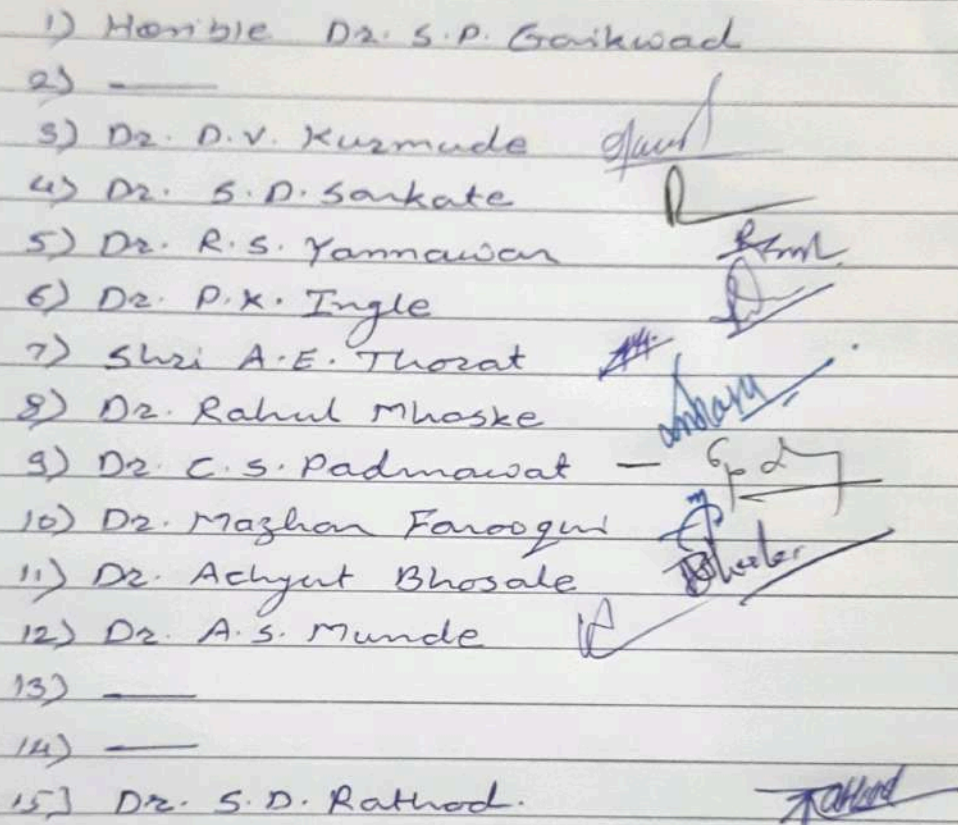 1) Hon'ble Dr. S.P. Gaikwad
2) —
3) Dr. D.V. Kurmude
4) Dr. S.D. Sarkate
5) Dr. R.S. Yannawar
6) Dr. P.K. Ingle
7) Shri A.E. Thorat
8) Dr. Rahul Mhaske
9) Dr. C.S. Padmawat —
10) Dr. Mazhar Farooqui
11) Dr. Achyut Bhosale
12) Dr. A.S. Munde
13) —
14) —
15) Dr. S.D. Rathod.